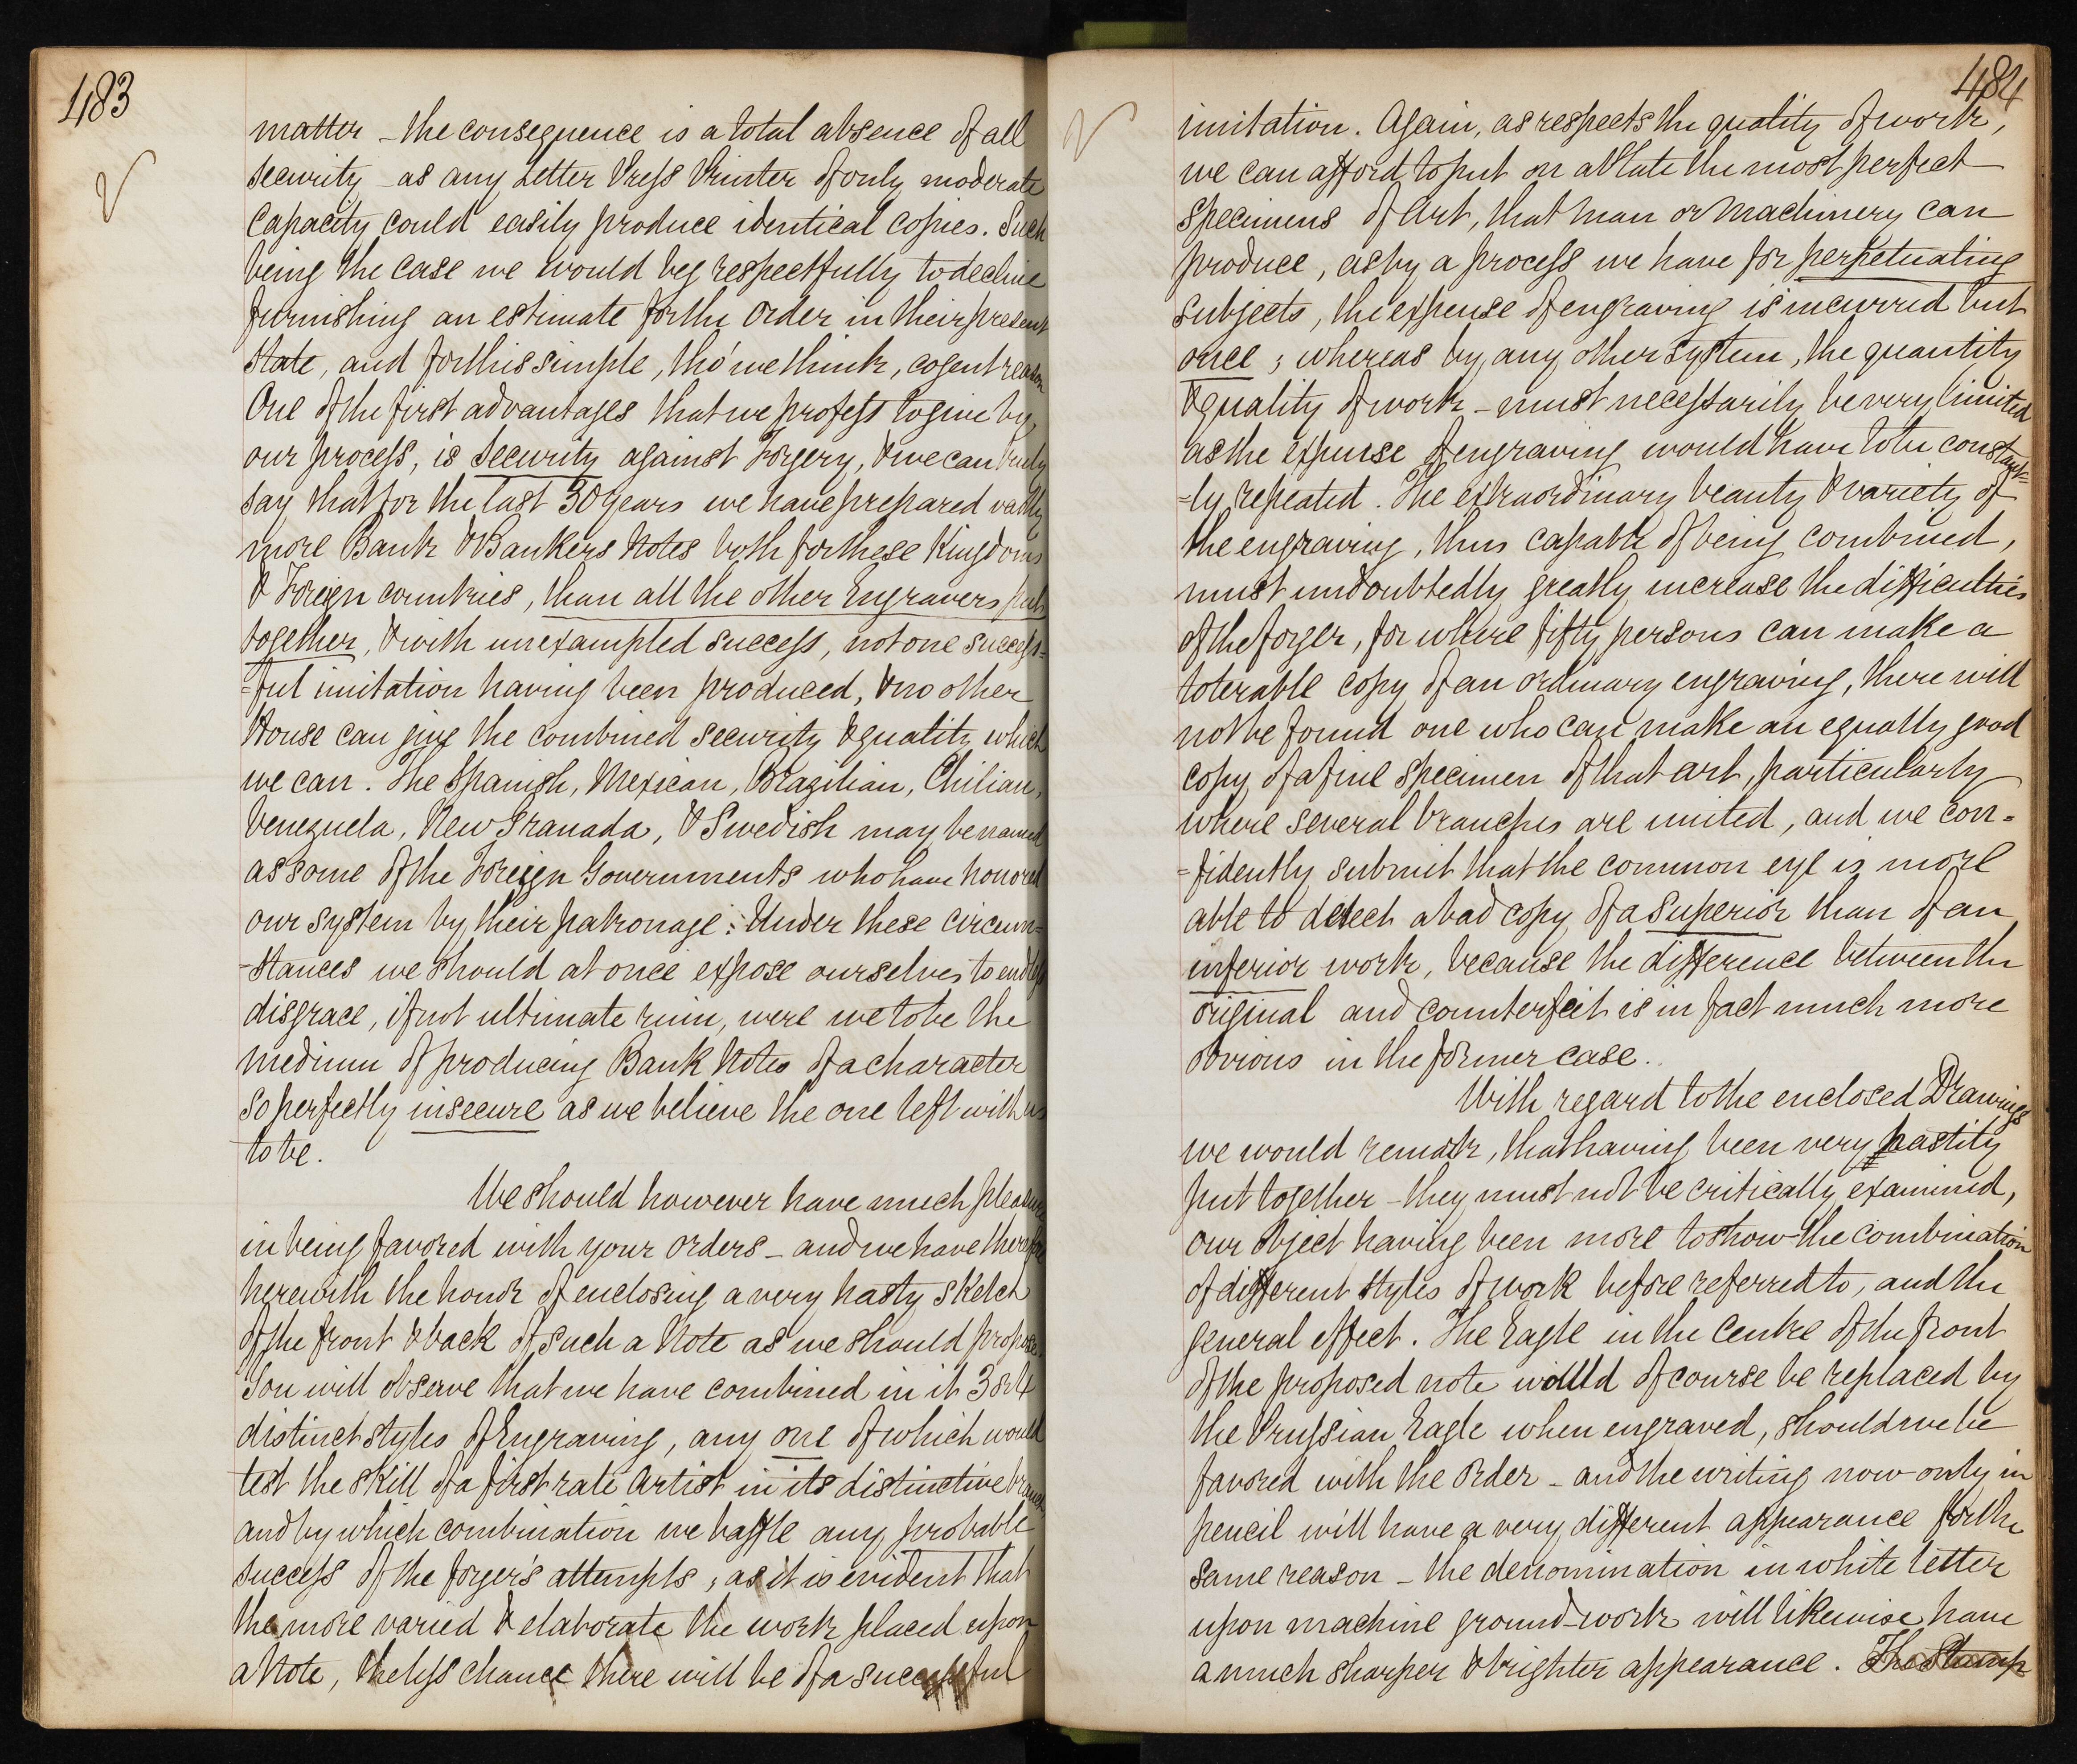 483
matter - the consequence is a total absence of all
security - as any Letter Press Printer of only moderate
Capacity could easily produce identical copies. Such
being the case we would beg respectfully to decline
furnishing an estimate for the Order in their present
State, and for this simple, tho' we think, cogent reason
One of the first advantages that we profess to give by
our process, is Security against Forgery, & we can truly
say that for the last 30 years we have prepared vastly
more Bank & Bankers Notes both for these Kingdoms
& Foreign countries, than all the other Engravers put
together, & with unexampled success, not one success=
=ful imitation having been produced, & no other
House can give the combined security & quality which
we can. The Spanish, Mexican, Brazilian, Chilian,
Venezuela, New Granada, & Swedish may be named
as some of the Foreign Governments who have honored
our system by their patronage: Under these circum=
-stances we should at once expose ourselves to endless
disgrace, if not ultimate ruin, were we to be the
medium of producing Bank Notes of a character
so perfectly insecure as we believe the one left with us
to be.
We should however have much pleasure
in being favored with your orders - and we have therefore
herewith the honor of enclosing a very hasty sketch
of the front & back of such a Note as we should propose.
You will observe that we have combined in it 3 or 4
distinct styles of Engraving, any one of which would
test the skill of a first rate Artist in its distinctive branch
and by which combination we baffle any probable
success of the forger's attempts; as it is evident that
the more varied & elaborate the work placed upon
a Note, the less chance there will be of a successful
484
imitation. Again, as respects the quality of work,
we can afford to put on a Plate the most perfect
specimens of Art, that man or Machinery can
produce, as by a process we have for perpetuating
subjects, the expense of engraving is incurred but
once; whereas by any other system, the quantity
& quality of work - must necessarily be very limited
as the expense of engraving would have to be constant=
=ly repeated. The extraordinary beauty & variety of
the engraving, thus capable of being combined,
must undoubtedly greatly increase the difficulties
of the forger, for where fifty persons can make a
tolerable copy of an ordinary engraving, there will
not be found one who can make an equally good
copy of a fine specimen of that art, particularly
where several branches are united, and we con=
=fidently submit that the common eye is more
able to detect a bad copy of a superior than of an
inferior work, because the difference between the
original and counterfeit is in fact much more
obvious in the former case.
With regard to the enclosed Drawings
we would remark, that having been very hastily
put together - they must not be critically examined,
our object having been more to show the combination
of different styles of work before referred to, and the
general effect. The Eagle in the Centre of the front
of the proposed note would of course be replaced by
the Prussian Eagle when engraved, should we be
favored with the Order - and the writing now only in
pencil will have a very different appearance for the
same reason - the denomination in white letter
upon machine ground-work will likewise have
a much sharper & brighter appearance. The Stamp